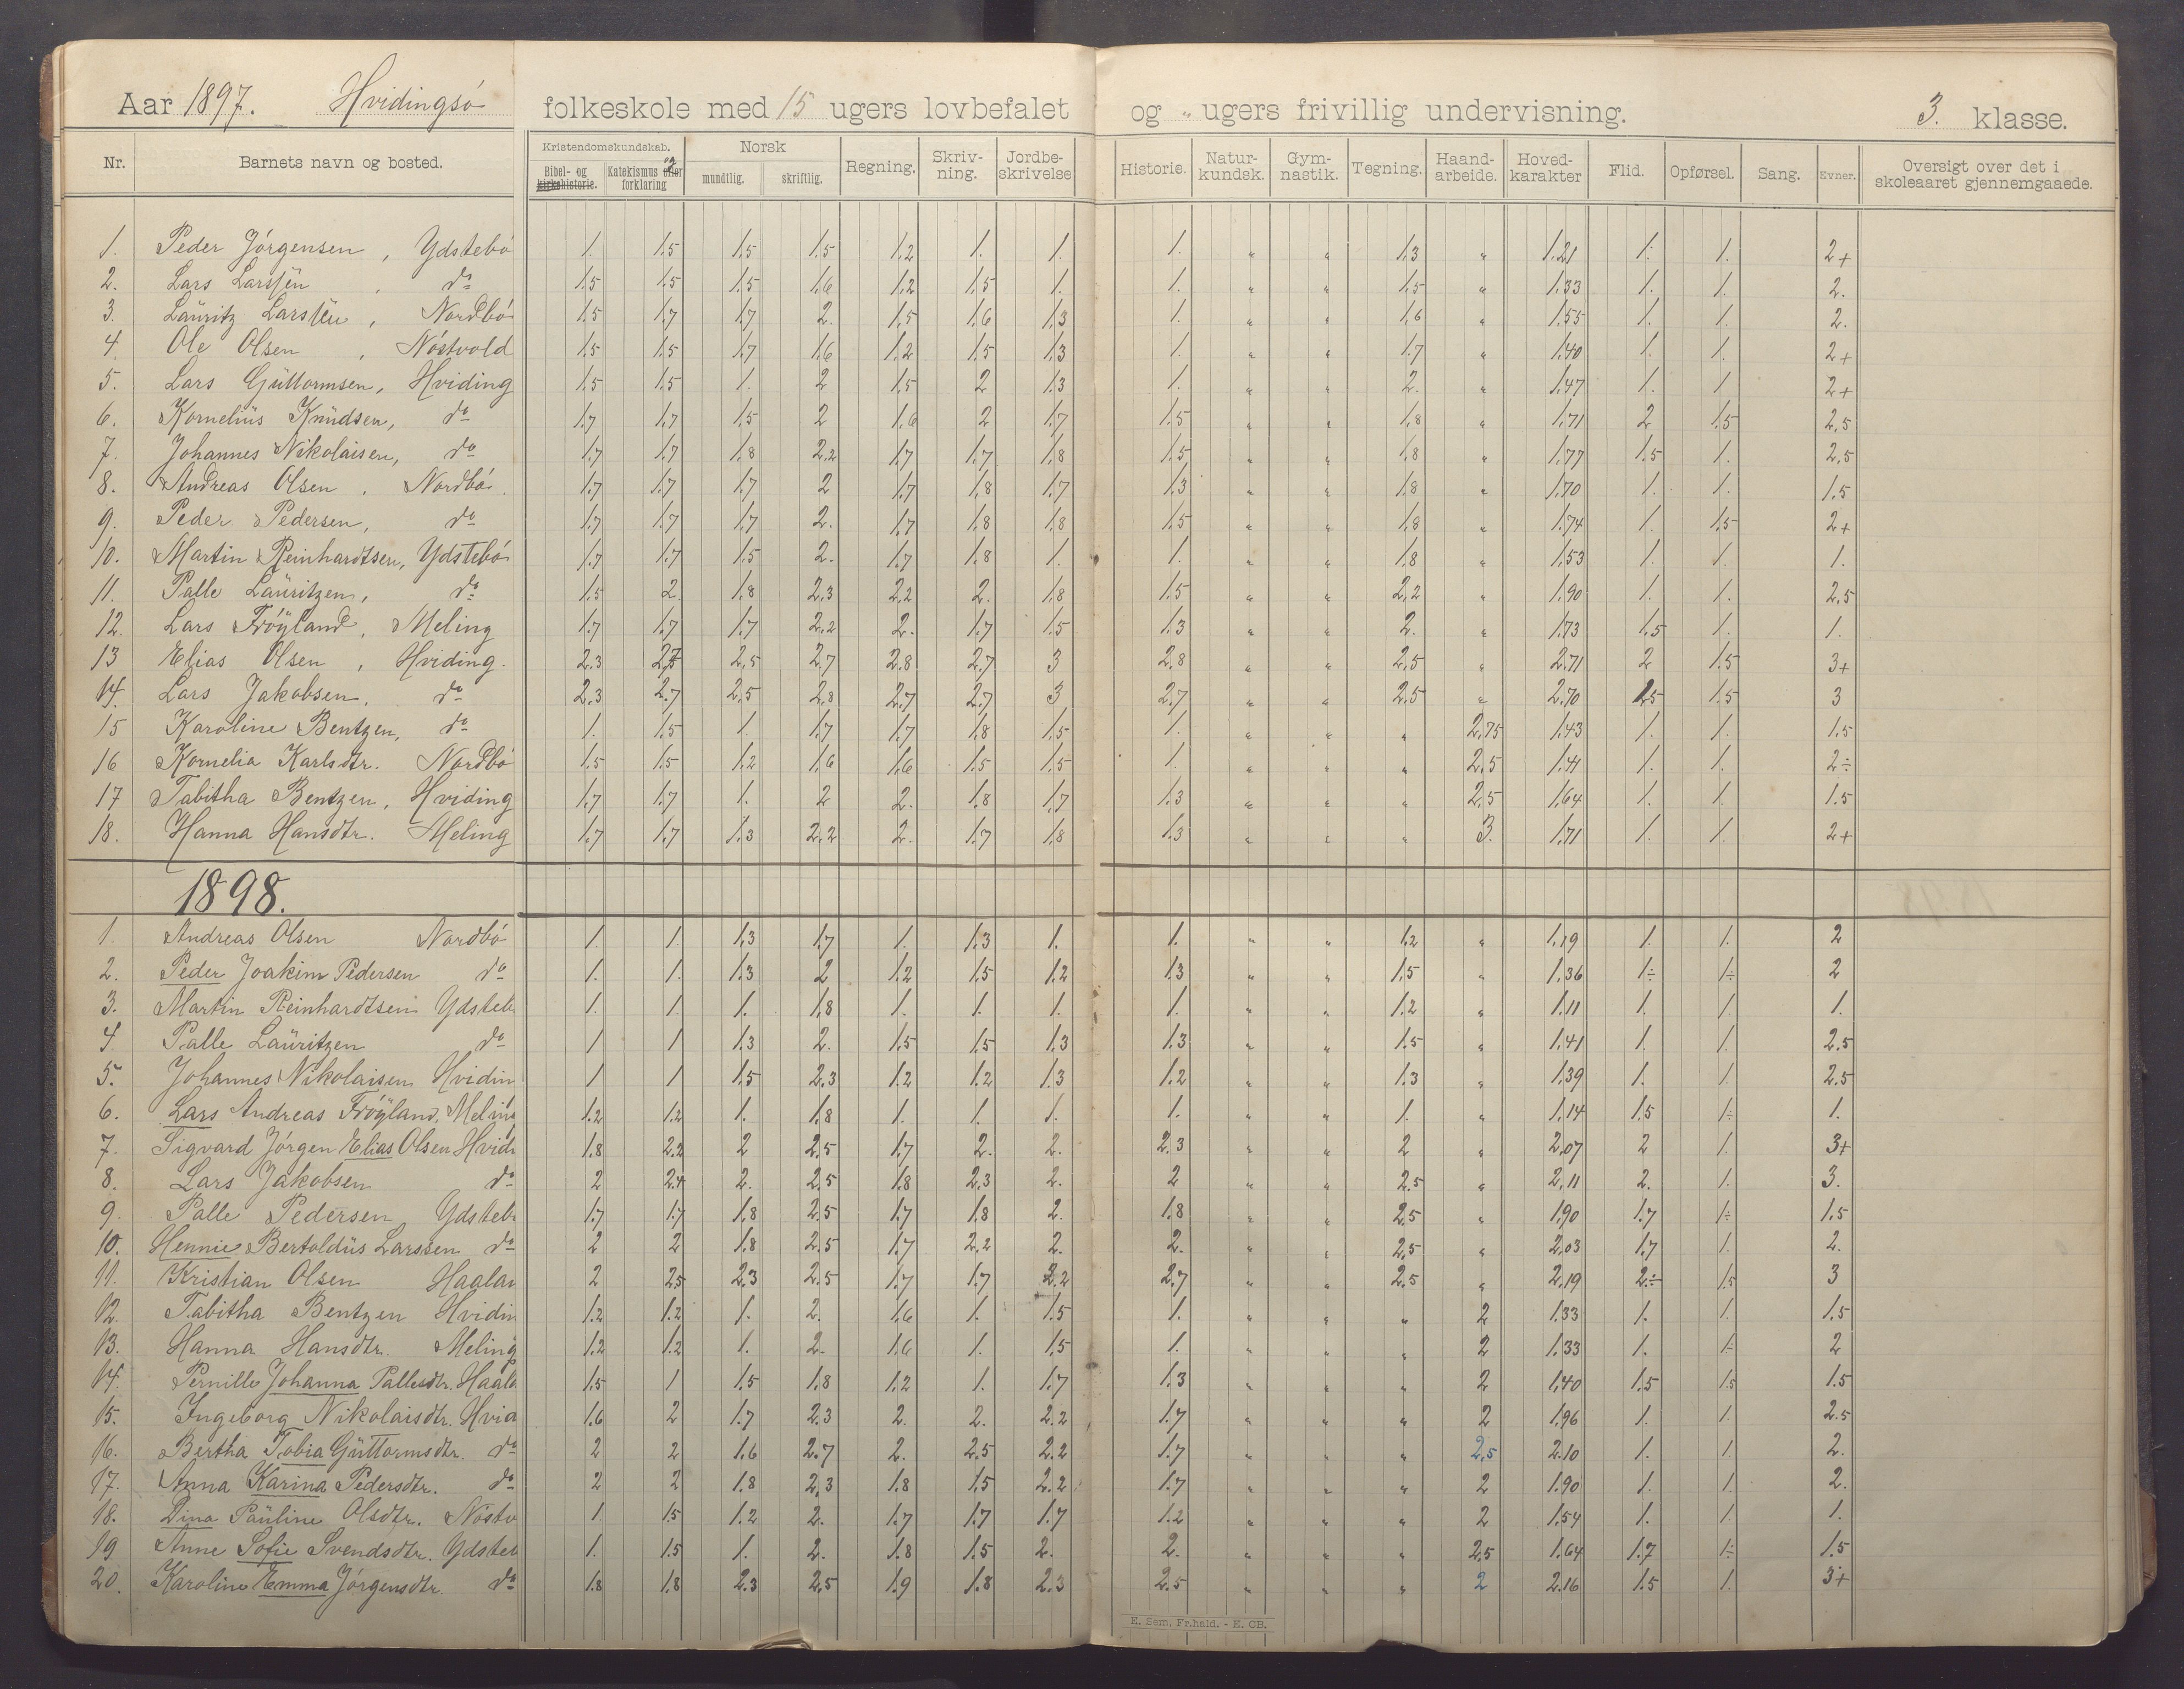 Aar 1897. Hvidingsö folkeskole med 15 ugers lovbefalet og " ugers frivillig undervisning. 3. klasse.
Nr. Barnets navn og bosted. Kristendomskundskab. Bibel- og kirkehistorie. Katekismus og forklaring Norsk mundtlig. skriftlig. Regning. Skriv-ning. Jordbe-skrivelse Historie. Natur-kundsk. Gym-nastik. Tegning. Haand-arbeide. Hoved-karakter Flid. Opførsel. Sang. Evner. Oversigt over det i skoleaaret gjennemgaaede.
1. Peder Jörgensen, Ydstebö 1. 1.5 1.5 1.5 1,2 1. 1. 1. " " 1.3 " 1.21 1. 1. 2+
2. Lars Larssen, do 1.5 1.5 1.5 1.6 1.2 1.5 1. 1. " " 1.5 " 1.33 1. 1. 2.
3. Lauritz Larssen, Nordbö 1.5 1.7 1.7 2. 1.5 1.6 1.3 1. " " 1.6 " 1.55 1. 1. 2.
4. Ole Olsen, Nöstvold 1.5 1.5 1.7 1.6 1.2 1.5 1.3 1. " " 1.7 " 1.40 1. 1. 2+
5. Lars Guttormsen, Hviding 1.5 1.5 1. 2 1.5 2 1.3 1. " " 2. " 1.47 1. 1 2+
6. Kornelius Knudsen, do 1.7 1.7 1.5 2 1.6 2 1.7 1.5 " " 1.8 " 1.71 2 1.5 2,5
7. Johannes Nikolaisen, do 1.7 1.7 1.8 2.2 1.7 1.7 1.8 1.5 " " 1.8 " 1.77 1.5 1. 2,5
8. Andreas Olsen, Nordbö. 1.7 1.7 1.7 2 1.7 1.8 1.7 1.3 " " 1.8 " 1.70 1. 1. 1.5
9. Peder Pedersen, do 1.7 1.7 1.7 2. 1.7 1.8 1.8 1.5 " " 1.8 " 1.74 1. 1.5 2+
10. Martin Reinhardtsen, Ydstebö 1.7 1.7 1.5 2. 1.7 1.8 1. 1. " " 1.8 " 1.53 1. 1. 1.
11. Palle Lauritzen, do 1.5 2. 1.8 2.3 2.2 2. 1.8 1.5 " " 2,2 " 1.90 1. 1. 2,5
12. Lars Fröyland, Meling 1.7 1.7 1.7 2.2 2. 1.7 1.5 1.3 " " 2. " 1.73 1.5 1. 1.
13 Elias Olsen, Hviding. 2.3 2.7 2,5 2.7 2.8 2.7 3 2.8 " " 2.5 " 2.71 2 1.5 3+
14. Lars Jakobsen, do 2.3 2.7 2,5 2,8 2.7 2.7 3 2.7 " " 2.5 " 2.70 2.5 1.5 3
15 Karoline Bentzen, do 1. 1.5 1. 1.7 1.7 1.8 1.5 1. " " " 2.75 1.43 1. 1. 1.5
16 Kornelia Karlsdtr. Nordbö 1.5 1.5 1.2 1.6 1.6 1.5 1.5 1. " " " 2,5 1.41 1. 1. 2÷
17 Tabitha Bentzen, Hviding 1.7 1.7 1. 2 2. 1.8 1.7 1.3 " " " 2,5 1.64 1. 1. 1.5
18. Hanna Hansdtr. Meling 1.7 1.7 1.3 2.2 2. 1.7 1.8 1.3 " " " 3. 1.71 1. 1. 2+
1898.
1. Andreas Olsen Nordbö 1. 1. 1.3 1.7 1. 1.3 1. 1. " " 1.2 " 1.19 1. 1. 2
2. Peder Joakim Pedersen do 1. 1. 1.3 2 1.2 1.5 1.2 1.3 " " 1.5 " 1.36 1÷ 1÷ 2
3. Martin Reinhardtsen Ydsteb 1. 1. 1. 1.8 1. 1. 1. 1. " " 1.2 " 1.11 1. 1. 1.
4. Palle Lauritzen do 1 1 1.3 2. 1.5 1.5 1.3 1.3 " " 1.5 " 1.41 1. 1. 2.5
5. Johannes Nikolaisen Hvidin 1 1 1.5 2.3 1.2 1.2 1.3 1.2 " " 1.3 " 1.39 1. 1. 2.5
6. Lars Andreas Fröyland, Meling 1.2 1.2 1. 1.8 1. 1. 1. 1. " " 1. " 1.14 1.5 1÷ 1.
7. Sigvard Jörgen Elias Olsen Hvidi 1.8 2.2 2 2.5 1.7 2. 2. 2.3 " " 2 " 2.07 2 1. 3+
8. Lars Jakobsen do 2 2.4 2. 2.5 1.8 2.3 2. 2 " " 2.5 " 2.11 2. 1. 3.
9. Palle Pedersen Ydsteb 1.7 1.7 1.8 2.5 1.7 1.8 2. 1.8 " " 2.5 " 1.90 1.7 1÷ 1.5
10. Hennie Bertoldus Larssen do 2 2 1.8 2.5 1.7 2.2 2. 2. " " 2.5 " 2.03 1.7 1. 2.
11. Kristian Olsen Haalan 2 2.5 2.3 2.5 1.7 1.7 2.2 2.7 " " 2.5 " 2.19 2÷ 1.5 3
12. Tabitha Bentzen Hvidin 1.2 1.2 1. 2. 1.6 1. 1.5 1. " " " 2 1.33 1. 1. 1.5
13. Hanna Hansdtr. Meling 1.2 1.2 1. 2. 1.6 1. 1.5 1. " " " 2 1.33 1. 1÷ 2
14. Pernille Johanna Pallesdtr. Haala 1.5 1 1.5 1.8 1.2 1. 1.7 1.3 " " " 2 1.40 1.5 1.5 1.5
15. Ingeborg Nikolaisdtr. Hvid 1.6 2 1.7 2.3 2. 2. 2.2 1.7 " " " 2 1.96 1. 1. 2.5
16. Bertha Tobia Guttormsdtr. do 2 2 1.6 2.7 2. 2.5 2.2 1.7 " " " 2,5 2.10 1. 1. 2.
17. Anna Karina Pedersdtr. do 2 2 1.8 2.3 1.8 1.5 2.2 1.7 " " " 2 1.90 1. 1. 2.
18. Dina Pauline Olsdtr. Nöstv 1. 1.5 1.2 2. 1.7 1.7 1.7 1.2 " " " 2 1.54 1. 1. 1.
19 Anne Sofie Svendsdtr. Ydsteb 1. 1.5 1. 2. 1.8 1.5 2. 2. " " " 2,5 1.64 1.7 1÷ 1.5
20. Karoline Emma Jörgensdtr. do 1.8 1.8 2.3 2.5 1.9 1.8 2.3 2.5 " " " 2 2.16 1.5 1. 3+
E. Sem, Fr.hald. - E. CB.